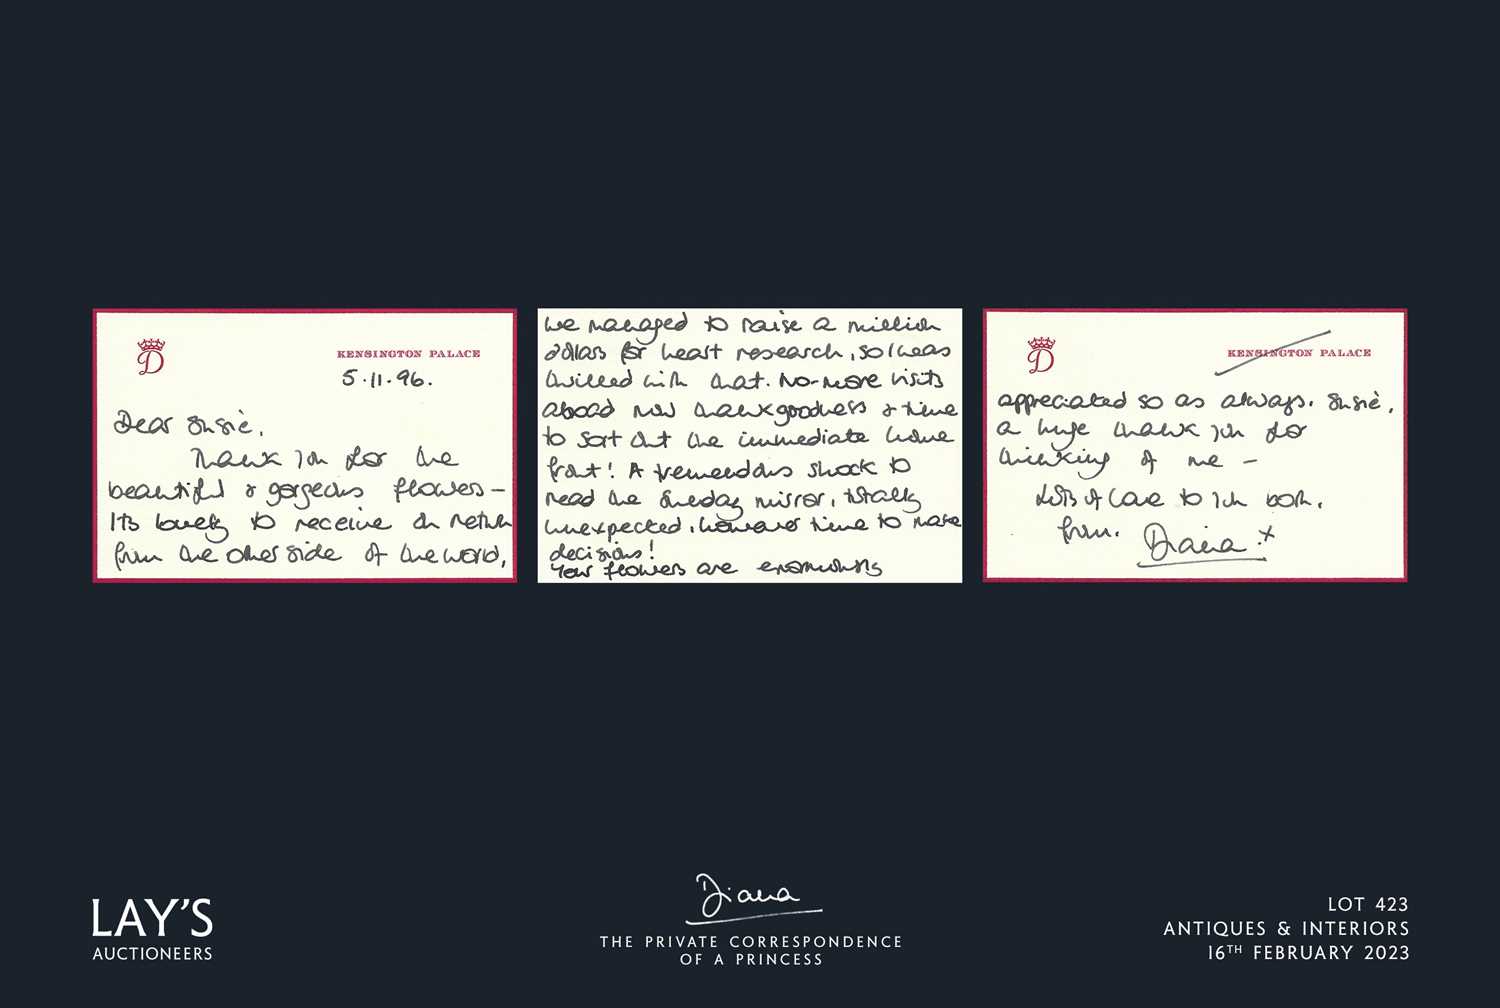 D
KENSINGTON PALACE
5.11.96.
Dear Susie,
Thank you for the
beautiful & gorgeous flowers –
Its lovely to receive on return
from the other side of the world,
We managed to raise a million
dollars for heart research, so I was
thrilled with that. No-more visits
abroad now thank goodness & time
to sort out the immediate home
front! A tremendous shock to
read the Sunday mirror, totally
unexpected, however time to make
decisions!
Your flowers are enormously
D
KENSINGTON PALACE
appreciated so as always. Susie,
a huge thank you for
thinking of me –
Lots of love to you both,
from. Diana .x
LAY'S
AUCTIONEERS
Diana
THE PRIVATE CORRESPONDENCE
OF A PRINCESS
LOT 423
ANTIQUES & INTERIORS
16TH FEBRUARY 2023